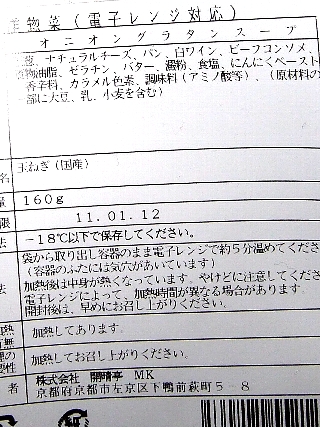 惣菜(電子レンジ対応)
オニオングラタンスープ
葱、ナチュラルチーズ、パン、白ワイン、ビーフコンソメ、
油脂、ゼラチン、バター、澱粉、食塩、にんにくペースト
香辛料、カラメル色素、調味料(アミノ酸等)、(原材料の
部に大豆、乳、小麦を含む)
名 玉ねぎ(国産)
量 160g
限 11.01.12
法 -18℃以下で保存してください。
袋から取り出し容器のまま電子レンジで約5分温めてくださ
(容器のふたには気穴があいています)
法 加熱後は中身が熱くなっています。やけどに注意してくださ
電子レンジによって、加熱時間が異なる場合があります。
開封後は、早めにお召し上がりください。
加熱してあります。
加熱してお召し上がりください。
者 株式会社 開晴亭 MK
京都府京都市左京区下鴨前萩町5-8